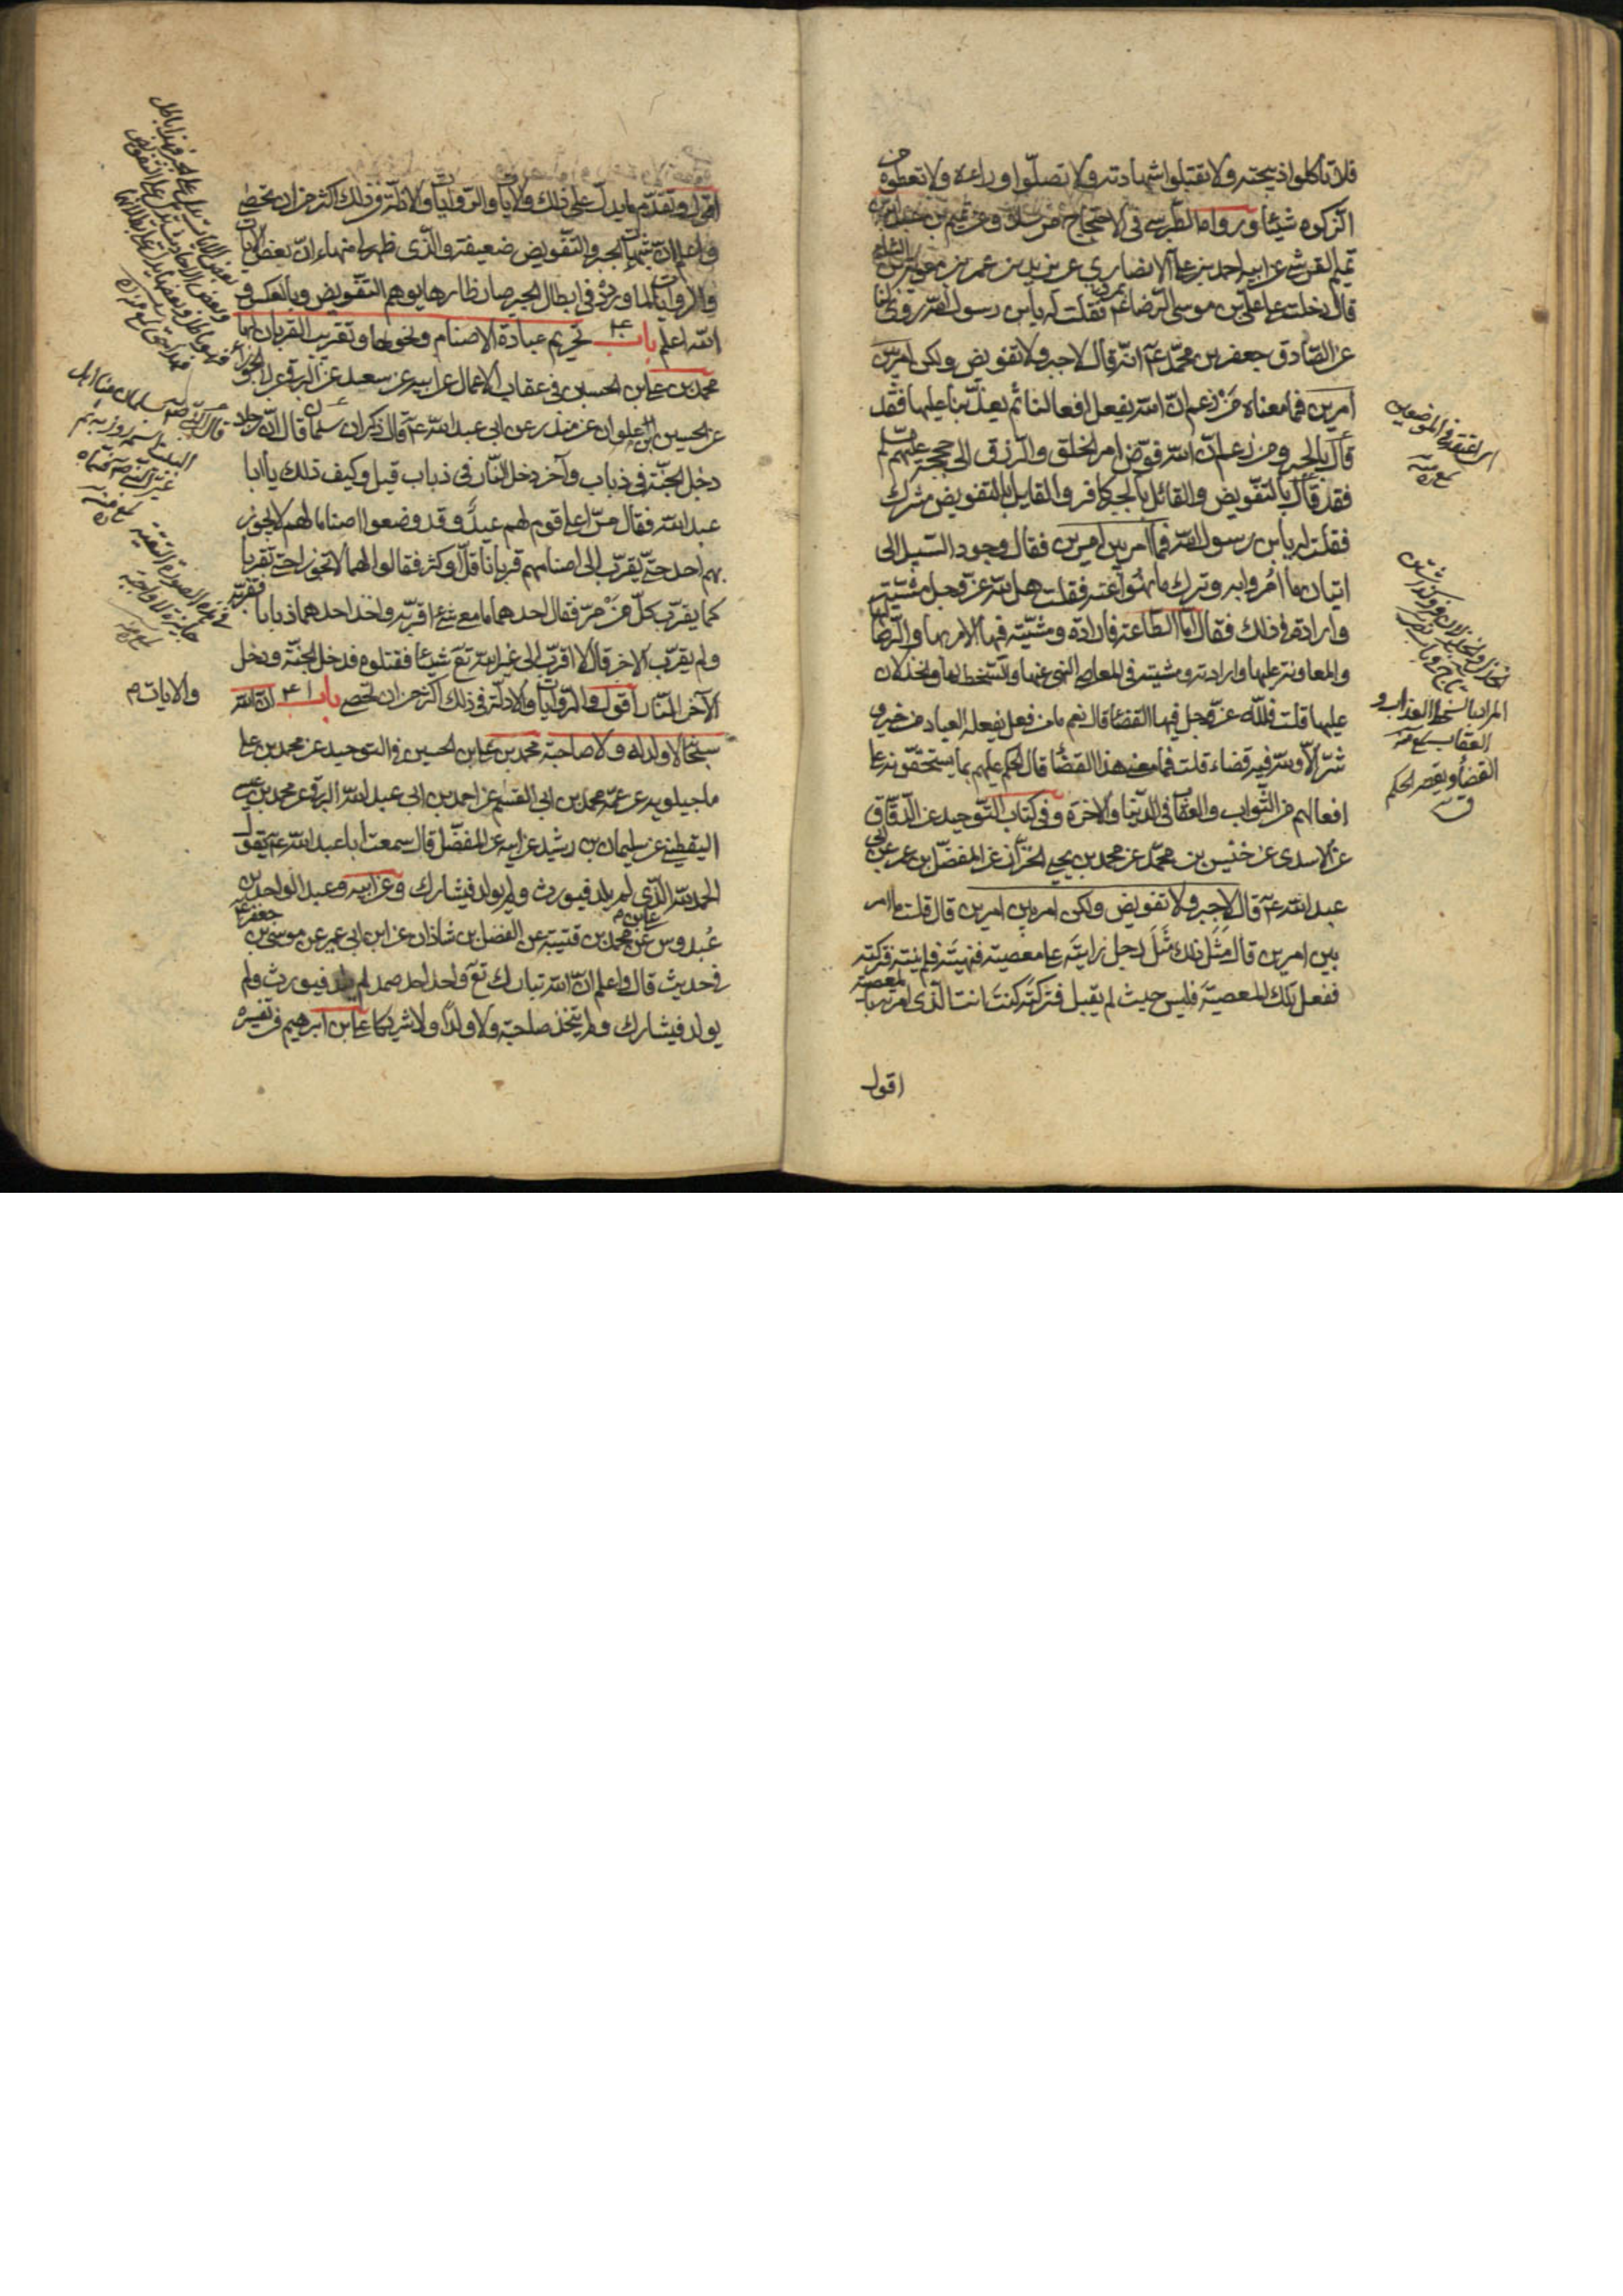 فلا تاكلوا ذبيحته ولا تقبلوا شهادته ولا تصلّوا وراءه ولا تعطوه من
الزكوة شيئا ورواه الطبرسى فى الاحتجاج مرسلا وعن تميم بن عبد الله بن
تميم القرشى عن ابيه احمد بن على الانصارى عن بريد بن عمير بن معوية الشامى
قال دخلت على على بن موسى الرضا ع بمرو فقلت له يابن رسول الله روى لنا
عن الصّادق جعفر بن محمّد ع انّه قال لا جبر ولا تفويض ولكن امر بين
امرين فما معناه قال من زعم انّ الله يفعل افعالنا ثم يعذّبنا عليها فقد
قال بالجبر ومن زعم انّ الله فوّض امر الخلق والرزق الى حججه عليهم السلم
فقد قال بالتفويض والقائل بالجبر كافر والقايل بالتفويض مشرك
فقلت له يابن رسول الله فما امر بين امرين فقال وجود السّبيل الى
اتيان ما امروا به وترك ما نهوا عنه فقلت هل لله عزّ وجل مشيّته
وارادة فى ذلك فقال امّا الطّاعة فارادة ومشيّته فيها الامر بها والرّضا لها
والمعاونة عليها وارادته ومشيته فى المعاصى النهى عنها والسّخط لها والخذلان
عليها قلت فللّه عزّ وجل فيها القضا قال نعم ما من فعل يفعله العباد من خير و
شرّ الاّ ولله فيه قضاء قلت فما معنى هذا القضا قال الحكم عليهم بما يستحقّونه على
افعالهم من الثّواب والعقاب فى الدّنيا والاخرة وفى كتاب التّوحيد عن الدقّاق
عن الاسدى عن خنيس بن محمّد عن محمد بن يحيى الخزّاز عن المفضّل بن عمر عن ابى
عبد الله ع قال لا جبر ولا تفويض ولكن امر بين امرين قال قلت ما امر
بين امرين قال مثل ذلك مثل رجل رايته على معصية فنهيته فلم ينته فتركته
ففعل تلك المعصية فليس حيث لم يقبل فتركته كنت انت الّذى امرته بالمعصية
اقول
المراد بالسخط العذاب و
العقاب منه
القضا ويقصر الحكم
ق
اقول وتقدّم ما يدلّ على ذلك والايات والرّوايات والادلّة فى ذلك اكثر من ان تحصى
واعلم انّ شبهات الجبر والتّفويض ضعيفة والّذى ظهر لى منها انّ بعض الايات
والرّوايات لما ورد فى ابطال الجبر صار ظاهرها يوهم التّفويض وبالعكس و
الله اعلم باب ٤٠ تحريم عبادة الاصنام ونحوها وتقريب القربان لها
محمد بن على بن الحسين فى عقاب الاعمال عن ابيه عن سعيد عن البرقى عن الجوزاء
عن الحسين بن علوان عن منذر عن ابى عبد الله ع قال ذكر ان سلمان قال انّ رجلا
دخل الجنّة فى ذباب وآخر دخل النّار فى ذباب قيل وكيف ذلك يا ابا
عبد الله فقال مرّا على قوم لهم عيد وقد وضعوا اصناما لهم لا يجوز
بهم احد حتّى يقرّب الى اصنامهم قربانا قلّ او كثر فقالوا لهما لا تجوزا حتى تقربا
كما يقرّب كلّ من مرّ فقال احدهما ما معى شئ اقربه واخذ احدهما ذبابا فقرّبه
ولم يقرّب الاخر قال لا اقرّب الى غير الله تع شيئا فقتلوه فدخل الجنّة ودخل
الآخر النّار اقول والرّوايات والادلّة فى ذلك اكثر من ان تحصى باب ٤١ انّ الله
سبحانه لا ولد له ولا صاحبة محمد بن على بن الحسين فى التوحيد عن محمد بن على
ماجيلويه عن عمّه محمد بن ابى القسم عن احمد بن ابى عبد الله البرقى عن محمد بن عيسى
اليقطينى عن سليمان بن رشيد عن ابيه عن المفضّل قال سمعت ابا عبد الله ع يقول
الحمد لله الّذى لم يلد فيورث ولم يولد فيشارك وعن ابيه وعبد الواحد بن
عبدوس عن على بن محمد بن قتيبة عن الفضل بن شاذان عن ابن ابى عمير عن موسى بن جعفر ع
فى حديث قال واعلم انّ الله تبارك تع واحد احد صمد لم يلد فيورث ولم
يولد فيشارك ولم يتخذ صاحبة ولا ولدا ولا شريكا على بن ابرهيم فى تفسيره
والايات م